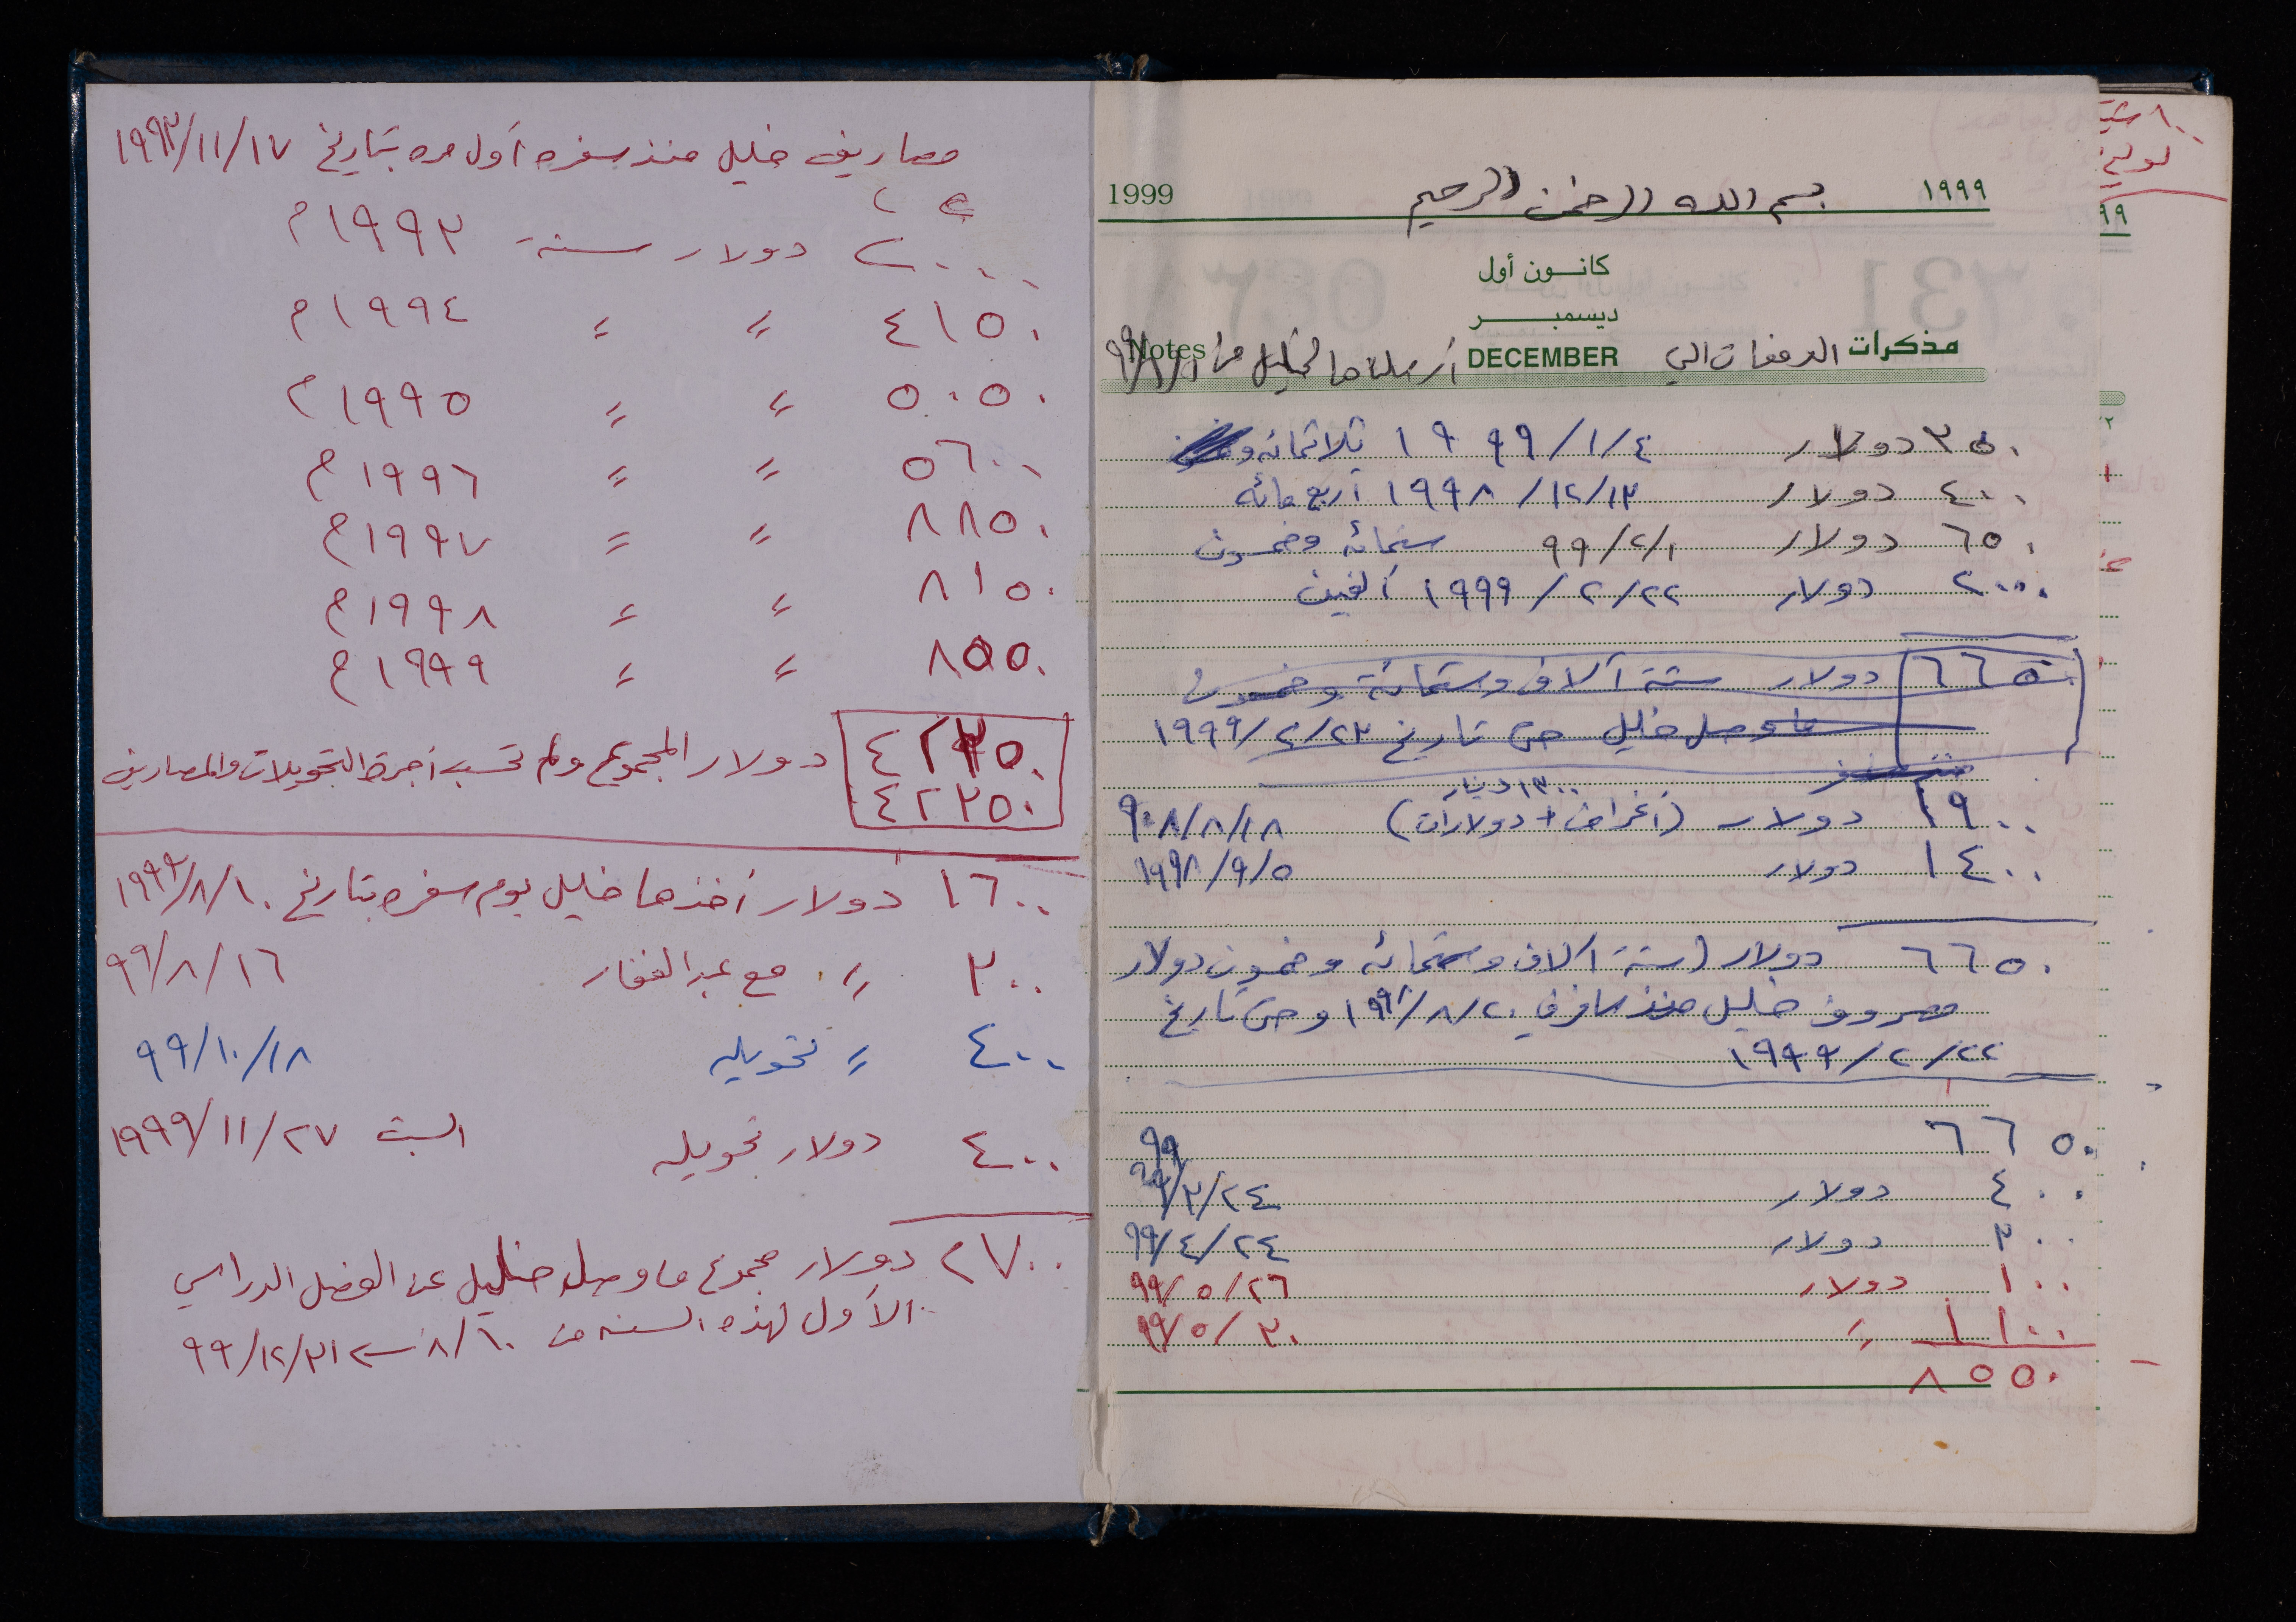 ١٠٠ شيـ
لوليد
٩٩
1999 بسم الله الرحمن الرحيم ١٩٩٩
كانـون أول
ديسمبـر
مذكرات الدفعات التي DECEMBER أرسلناها لخليل من ٩٩/١/١ Notes
٣٥٠ دولار ١٩٩٩/١/٤ ثلاثمائه و
٤٠٠ دولار ١٩٩٨/١٢/١٣ أربع مائه
٦٥٠ دولار ٩٩/٢/١ ستمائه وخمسون
٢٠٠٠ دولار ١٩٩٩/٢/٢٢ ألفين
٦٦٥٠ دولار ستة آلاف وستمائة وخمسون
ما وصل خليل حتى تاريخ ١٩٩٩/٢/٢٣
١٣٠٠ دينار
١٩٠٠ دولار (أغراض + دولارات) ٩٠٨/٨/١٨
١٤٠٠ دولار ١٩٩٨/٩/٥
٦٦٥٠ دولار (ستة آلاف وستمائه وخمسون دولار
مصروف خليل منذ سافر في ١٩٩٨/٨/٢٠ وحتى تاريخ
١٩٩٩/٢/٢٢
٦٦٥٠ ٩٩
٤٠٠ دولار ٩٩/٣/٢٤
٣٠٠ دولار ٩٩/٤/٢٤
١٠٠ دولار ٩٩/٥/٢٦
١١٠٠ = ٩٩/٥/٣٠
٨٥٥٠
مصاريف خليل منذ سفره أول مره بتاريخ ١٩٩٣/١١/١٧
٢٠٠٠ دولار سنة ١٩٩٣م
٤١٥٠ = = ١٩٩٤م
٥٠٥٠ = = ١٩٩٥م
٥٦٠٠ = = ١٩٩٦م
٨٨٥٠ = = ١٩٩٧م
٨١٥٠ = = ١٩٩٨م
٨٥٥٠ = = ١٩٩٩م
٤٢٣٥٠ دولار المجموع ولم تحسب أجرة التحويلات والمصاريف
٤٢٣٥٠
١٦٠٠ دولار أخذها خليل يوم سفره بتاريخ ١٩٩٩/٨/١٠
٣٠٠ = مع عبد الغفار ٩٩/٨/١٦
٤٠٠ = تحويله ٩٩/١٠/١٨
٤٠٠ دولار تحويله السبت ١٩٩٩/١١/٢٧
٢٧٠٠ دولار مجموع ما وصل خليل عن الفصل الدراسي
الأول لهذه السنه من ٨/١٠ ← ٩٩/١٢/٣١